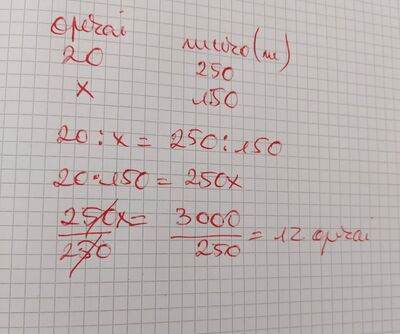 operai muro (m)
20 250
x 150
20 : x = 250 : 150
20 · 150 = 250x
250x / 250 = 3000 / 250 = 12 operai